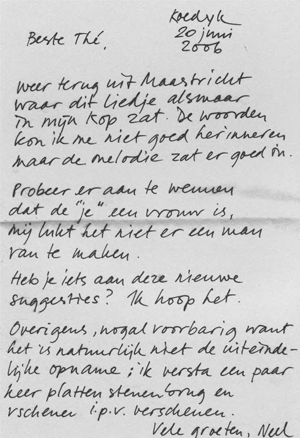 Koedyk
20 juni
2006
Beste Thé,
weer terug uit Maastricht
waar dit liedje alsmaar
in mijn kop zat. De woorden
kon ik me niet goed herinneren
maar de melodie zat er goed in.
Probeer er aan te wennen
dat de "je" een vrouw is,
mij lukt het niet er een man
van te maken.
Heb je iets aan deze nieuwe
suggesties? Ik hoop het.
Overigens, nogal voorbarig want
het is natuurlijk niet de uiteinde-
lijke opname; ik versta een paar
keer platten stenen brug en
vschenen i.p.v. verschenen.
Vele groeten, Neel